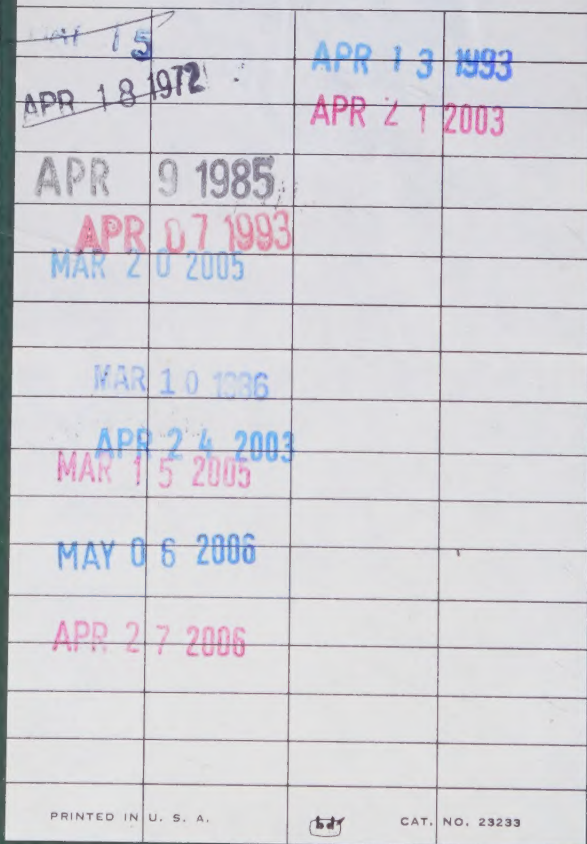 15
APR 18 1972
APR 9 1985
APR 07 1993
MAR 20 2005
MAR 10
APR 24 2003
MAR 15 2005
MAY 06 2006
APR 27 2006
APR 13 1993
APR 21 2003
PRINTED IN U. S. A.
bdr
CAT. NO. 23233